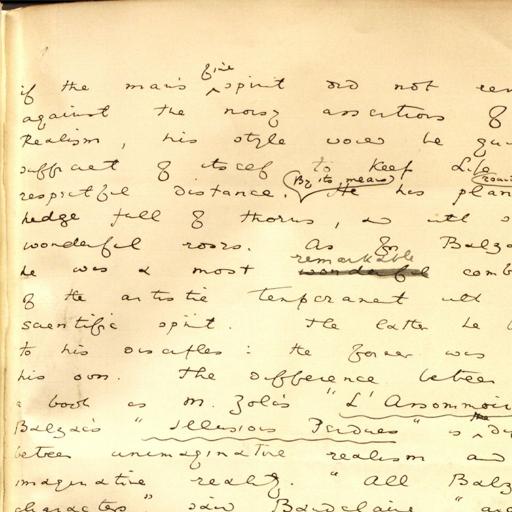 if the man's fine spirit did not
against the noisy assertions of
Realism, his style would be
sufficient of itself to keep Life
respectful distance. By its means He has
hedge full of thorns, and with
wonderful roses. As for Balzac
he was a most remarkable wonderful
of the artistic temperament with
scientific spirit. The latter he
to his disciples: the former was
his own. The difference between
a book as M. Zola's "L'Assommoir
Balzac's "Illusions Perdues" is the
between unimaginative realism and
imaginative reality. "All
characters" said Baudelaire "are